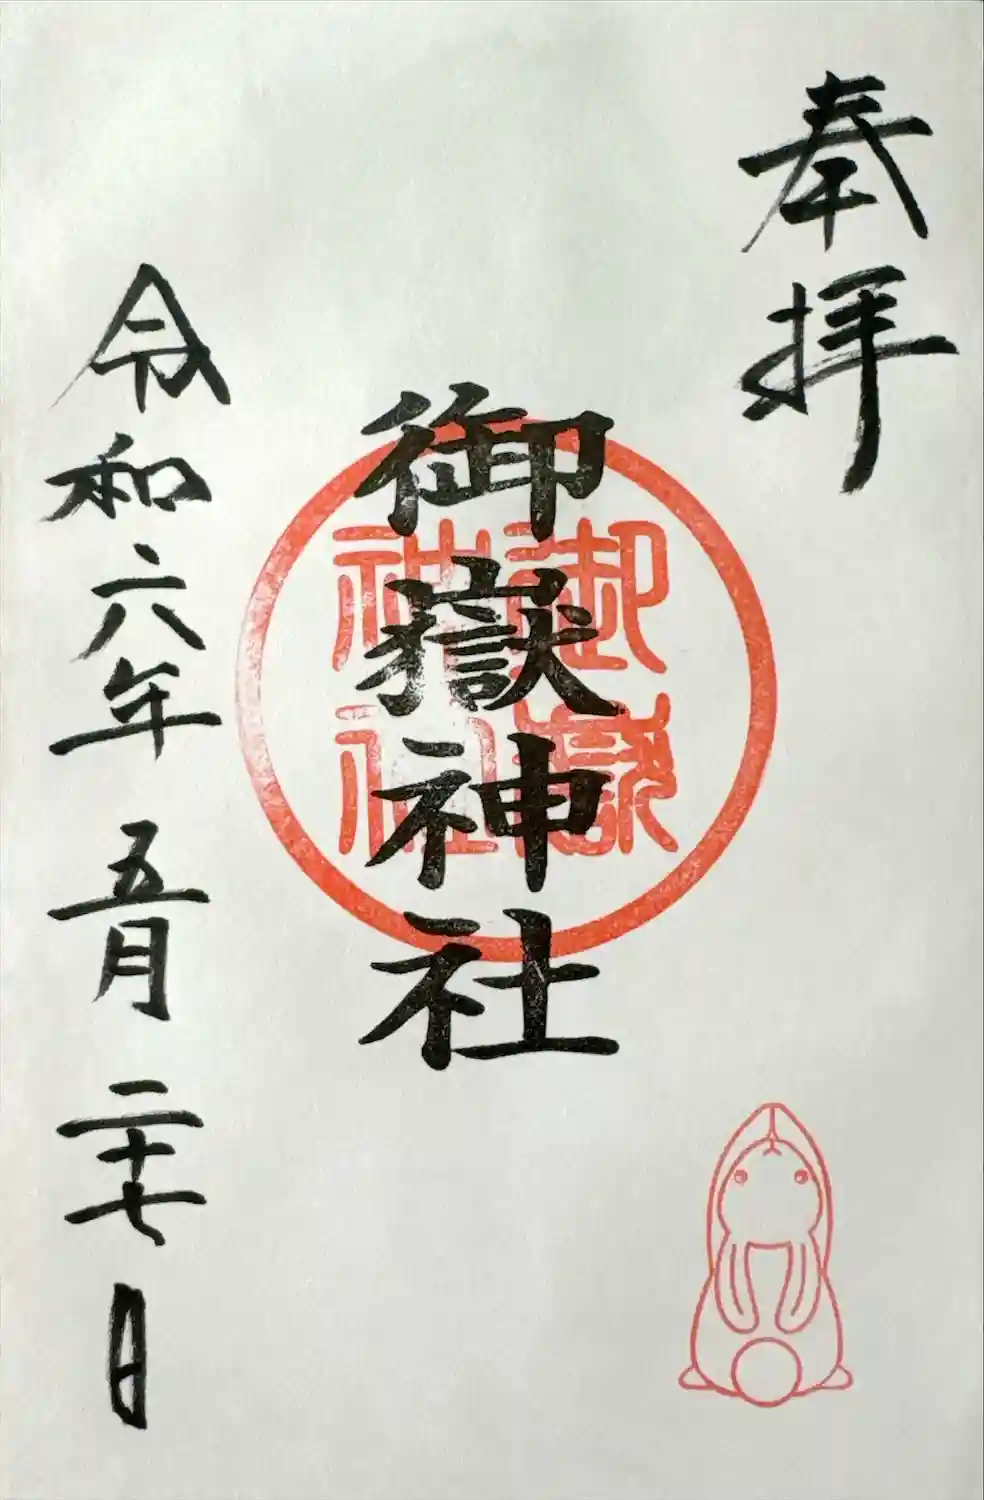 奉拝
御嶽神社
御嶽
神社
令和六年 五月 二十七日